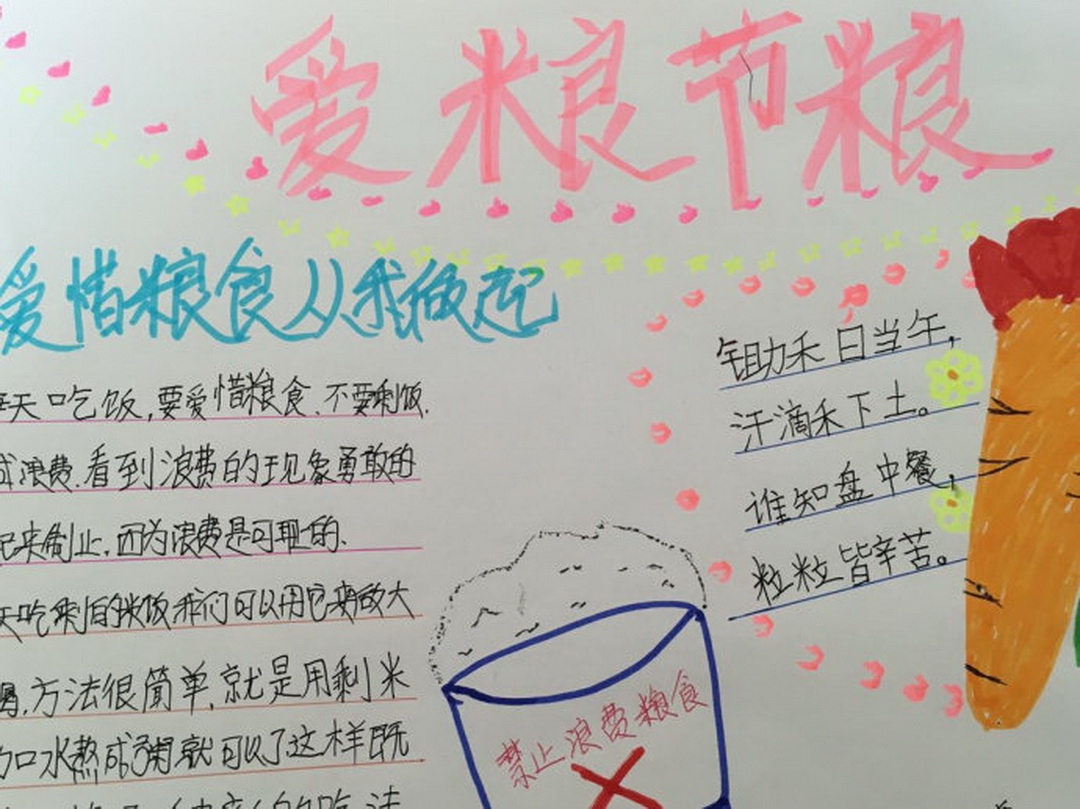 爱粮节粮
爱惜粮食从我做起
天吃饭,要爱惜粮食、不要剩饭.
浪费.看到浪费的现象勇敢的
来制止,因为浪费是可耻的.
吃剩的米饭我们可以用它来做大
,方法很简单,就是用剩米
加口水熬成粥就可以了这样既
的吃法
锄禾日当午,
汗滴禾下土。
谁知盘中餐,
粒粒皆辛苦。
禁止浪费粮食